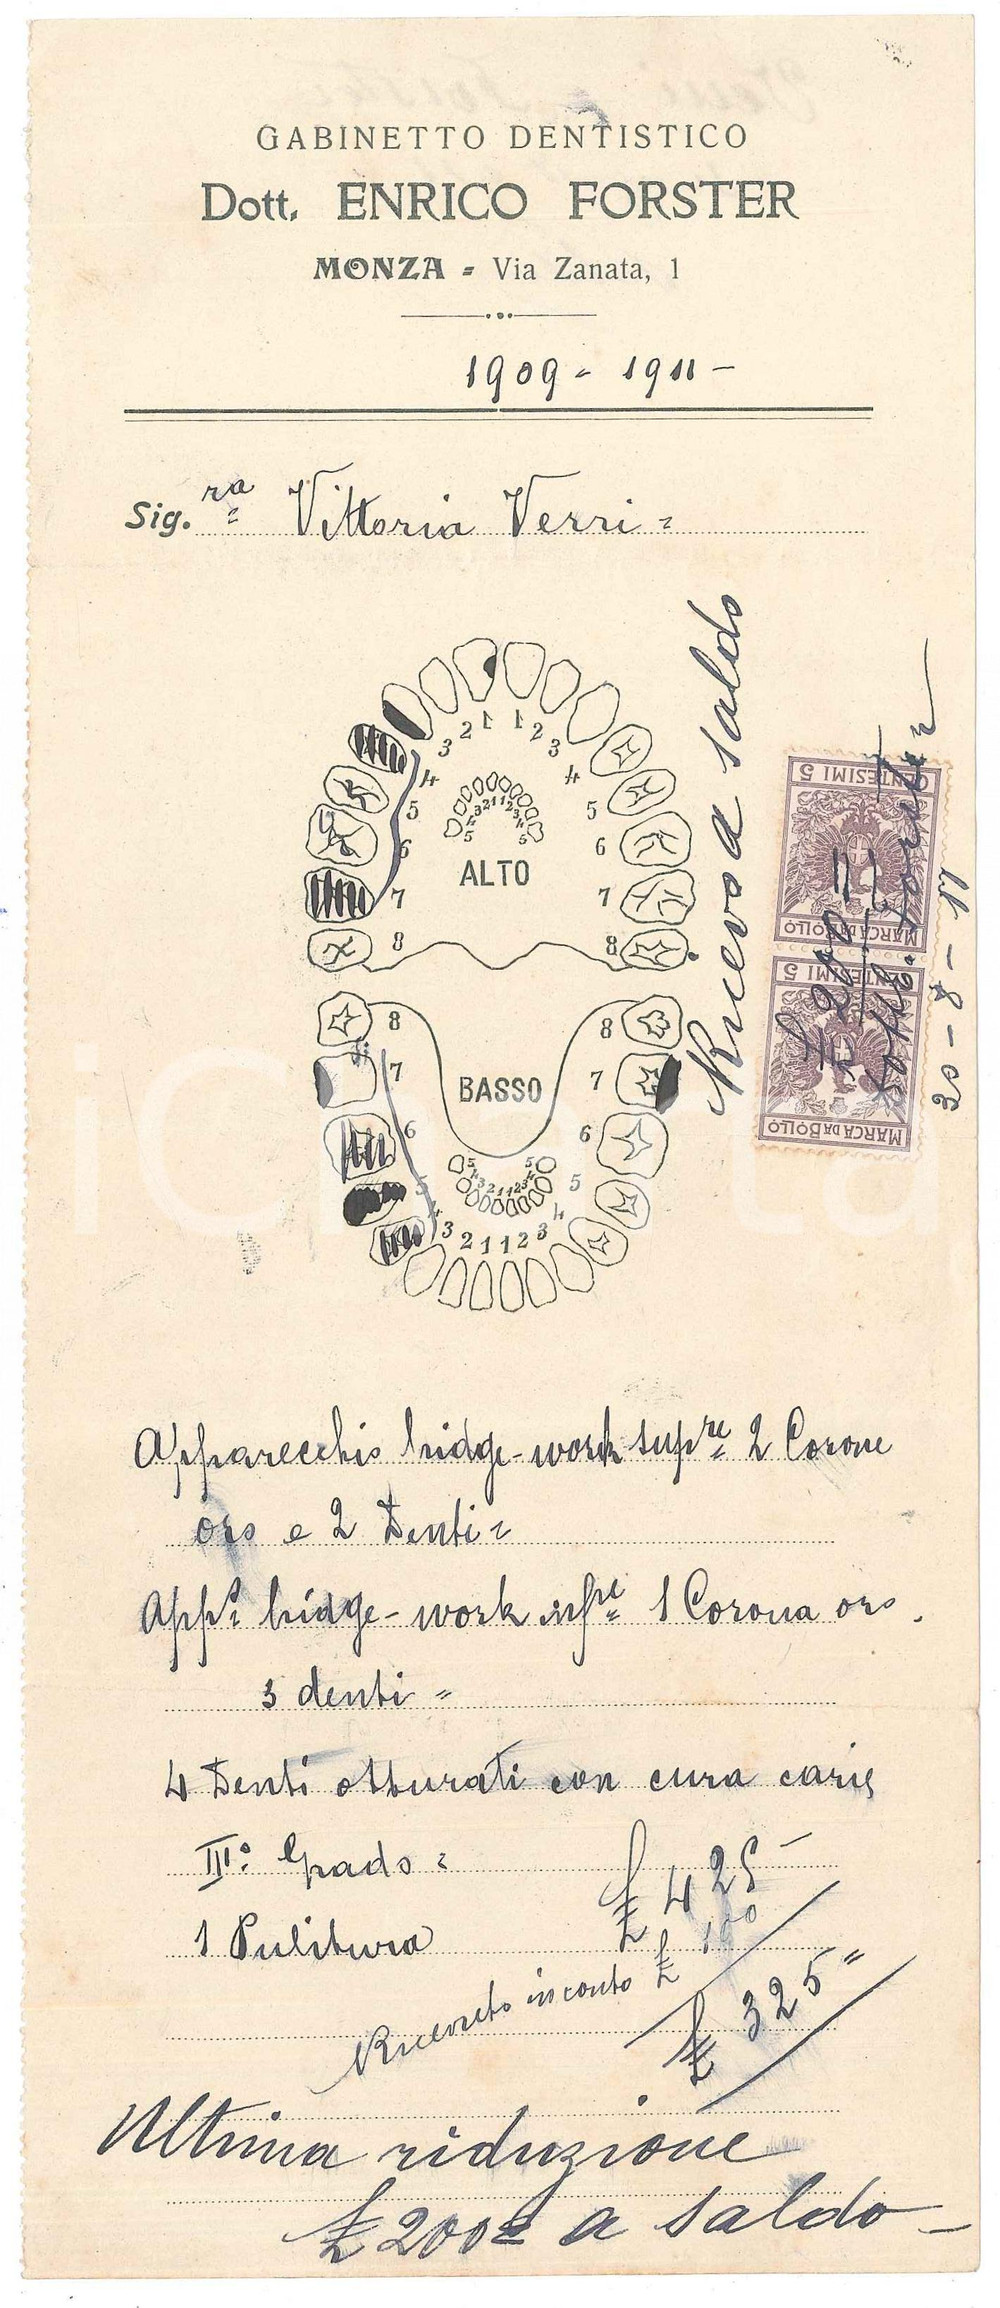 GABINETTO DENTISTICO
Dott. ENRICO FORSTER
MONZA - Via Zanata, 1
1909 - 1911 -
Sig.ra Vittoria Verri =
3 2 1 1 2 3
4 4
5 5
6 6
7 7
8 8
5 4 3 2 1 1 2 3 4 5
ALTO
8 8
7 7
6 6
5 5
4 4
3 2 1 1 2 3
BASSO
5 4 3 2 1 1 2 3 4 5
Ricevo a saldo
£ 200 =
Dott. E. Forster
30 - 8 - 11
CENTESIMI 5
MARCA DA BOLLO
CENTESIMI 5
MARCA DA BOLLO
Apparecchio bridge-work supre 2 Corone
oro e 2 Denti =
Appo bridge-work infre 1 Corona oro.
3 denti =
4 Denti otturati con cura carie
III° Grado =
£ 425 -
1 Pulitura
Ricevuto in conto £ 100
£ 325 "
Ultima riduzione
£ 200 = a saldo -